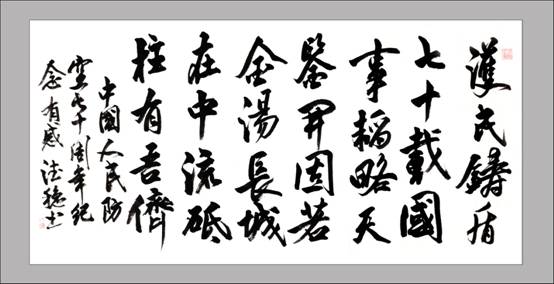 護民鑄盾
七十載國
事韜略天
鑒開固若
金湯長城
在中流砥
柱有吾儕
中國人民防
空七十周年纪
念有感